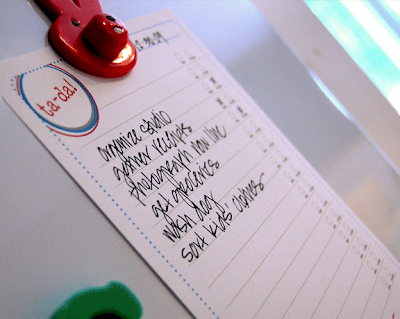 ta-da!
organize studio
gather records
photograph new line
get groceries
wash dog
sort kids' clothes